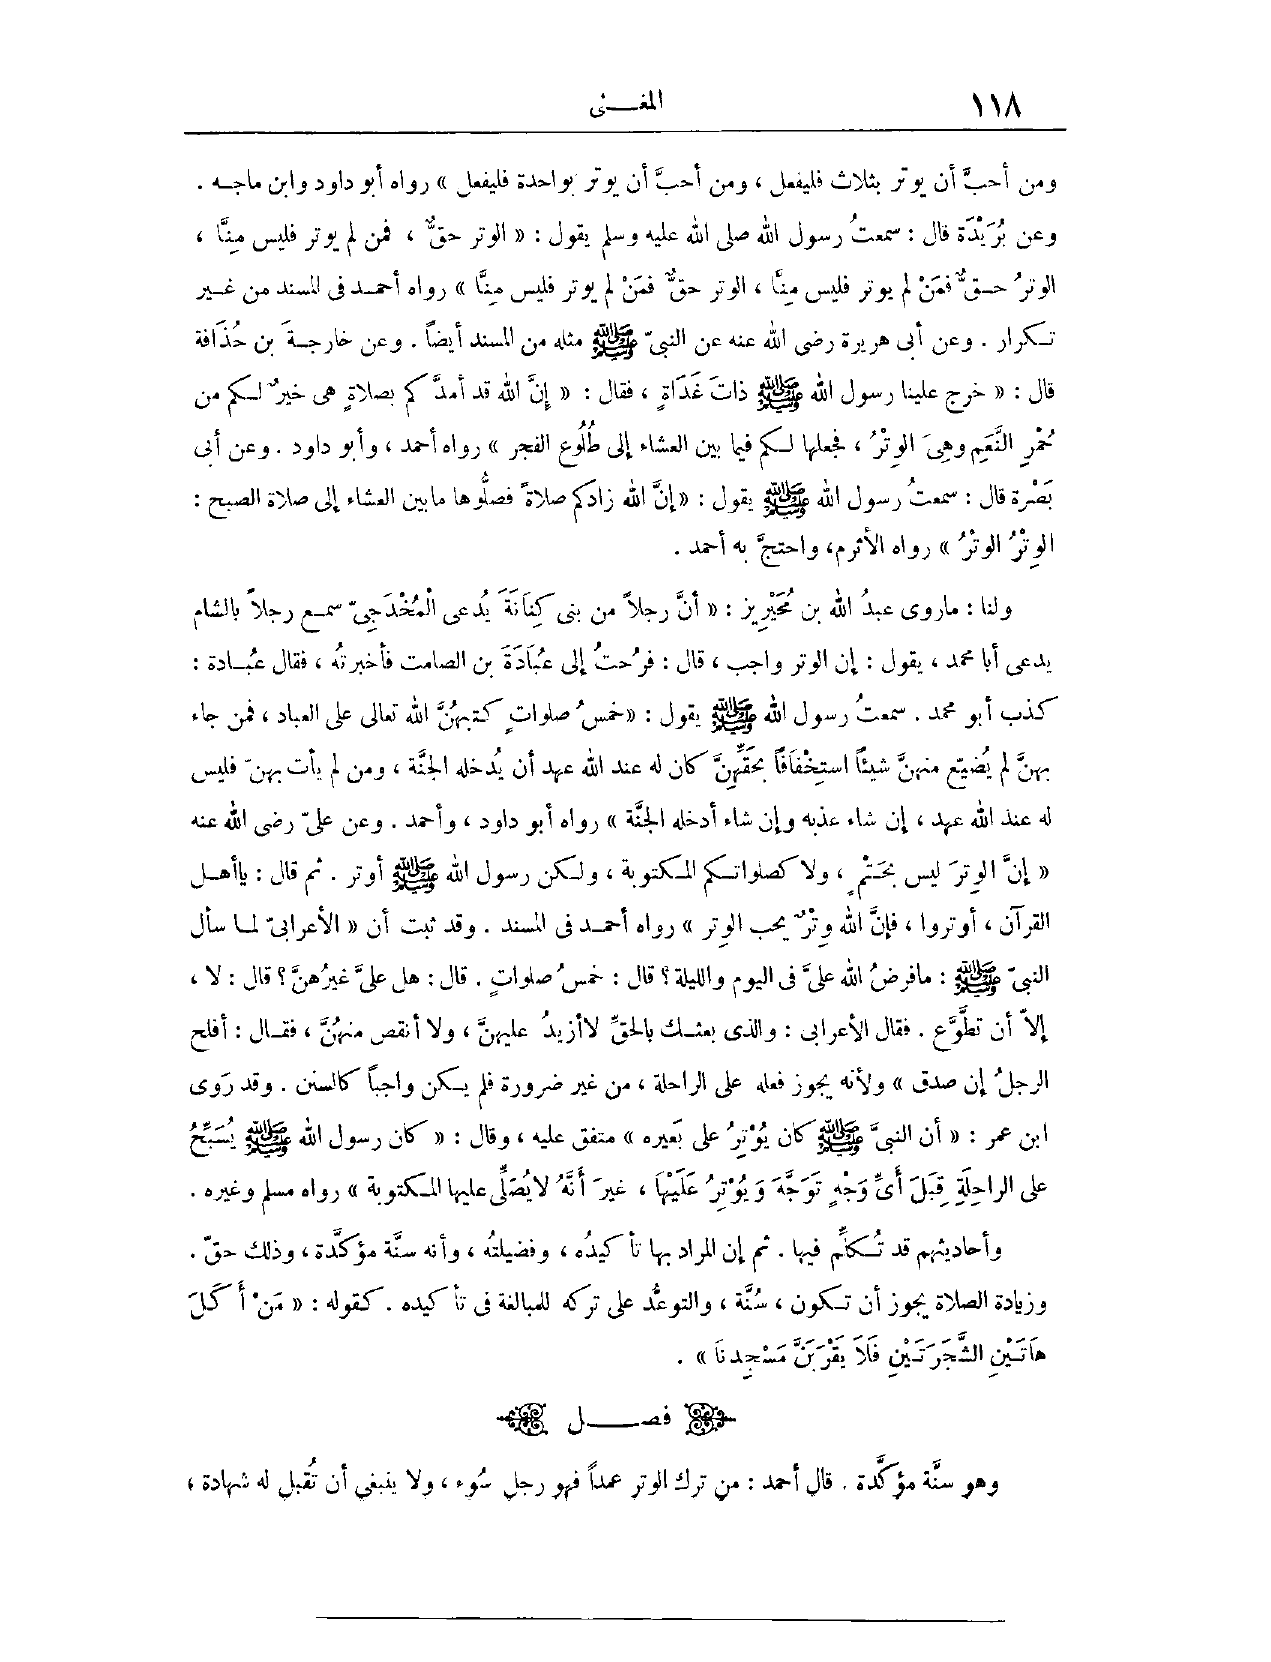 ١١٨
المغـــنى
ومن أحبَّ أن يوتر بثلاث فليفعل ، ومن أحبَّ أن يوتر بواحدة فليفعل » رواه أبو داود وابن ماجـه .
وعن بُرَيْدَة قال : سمعتُ رسول الله صلى الله عليه وسلم يقول : « الوتر حقٌّ ، فمن لم يوتر فليس مِنَّا ،
الوترُ حـقٌّ فمَنْ لم يوتر فليس مِنَّا ، الوتر حقٌّ فمَنْ لم يوتر فليس مِنَّا » رواه أحمـد فى المسند من غـير
تـكرار . وعن أبى هريرة رضى الله عنه عن النبىّ ﷺ مثله من المسند أيضاً . وعن خارجـةَ بن حُذَافة
قال : « خرج علينا رسول الله ﷺ ذاتَ غَدَاةٍ ، فقال : « إنَّ الله قد أمدَّكم بصلاةٍ هى خيرٌ لـكم من
حُمْرِ النَّعَم وهىَ الوِتْرُ ، فجعلها لـكم فيما بين العشاء إلى طُلُوع الفجر » رواه أحمد ، وأبو داود . وعن أبى
بَصْرة قال : سمعتُ رسول الله ﷺ يقول : « إنَّ الله زادكم صلاةً فصلُّوها مابين العشاء إلى صلاة الصبح :
الوِتْرُ الوتْرُ » رواه الأثرم، واحتجَّ به أحمد .
ولنا : ماروى عبدُ الله بن مُحَيْرِيز : « أنَّ رجلاً من بنى كِنَانَةَ يُدعى الْمُخْدَجِىّ سمـع رجلاً بالشام
يدعى أبا محمد ، يقول : إن الوتر واجب ، قال : فرُحتُ إلى عُبَادَةَ بن الصامت فأخبرتُه ، فقال عُبـادة :
كذب أبو محمد . سمعتُ رسول الله ﷺ يقول : « خمسُ صلواتٍ كتبهُنَّ الله تعالى على العباد ، فمن جاء
بهنَّ لم يُضيّع منهنَّ شيئاً استِخْفَافاً بحَقِّهِنَّ كان له عند الله عهد أن يُدخله الجنَّة ، ومن لم يأت بهنّ فليس
له عند الله عهد ، إن شاء عذبه وإن شاء أدخله الجنَّة » رواه أبو داود ، وأحمد . وعن علىّ رضى الله عنه
« إنَّ الوِترَ ليس بحَتْمٍ ، ولا كصلواتـكم المـكتوبة ، ولـكن رسول الله ﷺ أوتر . ثم قال : ياأهـل
القرآن ، أوتروا ، فإنَّ الله وِتْرٌ يحب الوتر » رواه أحمـد فى المسند . وقد ثبت أن « الأعرابىّ لمـا سأل
النبىّ ﷺ : مافرضُ الله علىَّ فى اليوم والليلة ؟ قال : خمسُ صلواتٍ . قال : هل علىَّ غيرُهنَّ ؟ قال : لا ،
إلاّ أن تطَّوَّع . فقال الأعرابى : والذى بعثـك بالحقِّ لاأزيدُ عليهنَّ ، ولا أنقص منهُنَّ ، فقـال : أفلح
الرجلُ إن صدق » ولأنه يجوز فعله على الراحلة ، من غير ضرورة فلم يـكن واجباً كالسنن . وقد رَوى
ابن عمر : « أن النبىَّ ﷺ كان يُوْتِرُ على بَعيره » متفق عليه ، وقال : « كان رسول الله ﷺ يُسَبِّحُ
على الراحِلَةِ قِبَلَ أىِّ وَجْهٍ تَوَجَّهَ وَيُوْتِرُ عَلَيْهَا ، غيرَ أنَّهُ لايُصَلِّى عليها المـكتوبة » رواه مسلم وغيره .
وأحاديثهم قد تُـكلِّم فيها . ثم إن المراد بها تأكيدُه ، وفضيلتُه ، وأنه سنَّة مؤكَّدة ، وذلك حقّ .
وزيادة الصلاة يجوز أن تـكون ، سُنَّة ، والتوعُّد على تركه للمبالغة فى تأكيده . كقوله : « مَنْ أَكَلَ
هَاتَـيْنِ الشَّجَرَتَـيْنِ فَلاَ يَقْرَبَنَّ مَسْجِدنَا » .
فصـــل
وهو سنَّة مؤكَّدة . قال أحمد : من ترك الوتر عمداً فهو رجل سُوء ، ولا ينبغى أن تُقبل له شهادة ،